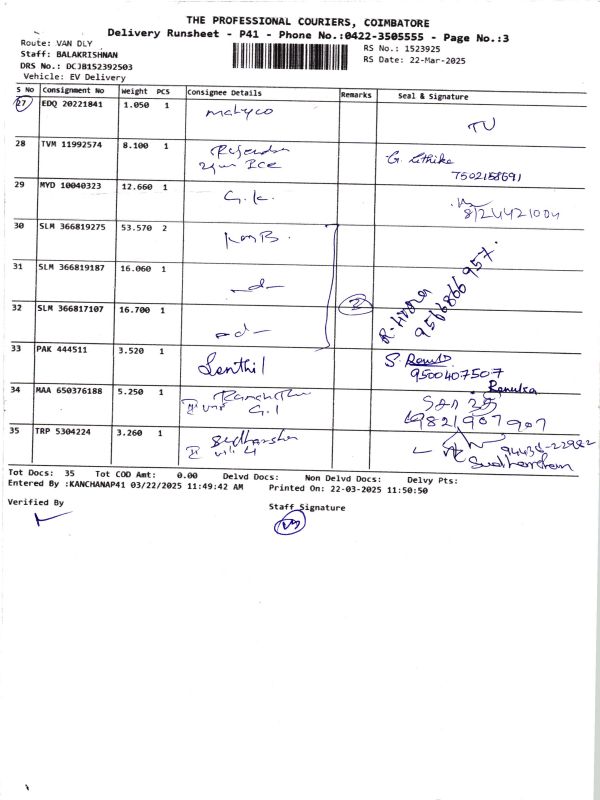 THE PROFESSIONAL COURIERS, COIMBATORE
Delivery Runsheet - P41 - Phone No.:0422-3505555 - Page No.:3
Route: VAN DLY
Staff: BALAKRISHNAN
DRS No.: DCJB152392503
Vehicle: EV Delivery
RS No.: 1523925
RS Date: 22-Mar-2025
S No Consignment No Weight PCS Consignee Details Remarks Seal & Signature
27 EDQ 20221841 1.050 1
28 TVM 11992574 8.100 1
G.
7502158691
29 MYD 10040323 12.660 1 G.K.
30 SLM 366819275 53.570 2 KMB.
31 SLM 366819187 16.060 1 -d-
2
9566866957.
32 SLM 366817107 16.700 1 -d-
33 PAK 444511 3.520 1 Senthil S.
9500407507
Renuka
34 MAA 650376188 5.250 1
G.I
9821907907
35 TRP 5304224 3.260 1 Sudharshan
94438-22982
Sudharshan
Tot Docs: 35 Tot COD Amt: 0.00 Delvd Docs: Non Delvd Docs: Delvy Pts:
Entered By :KANCHANAP41 03/22/2025 11:49:42 AM Printed On: 22-03-2025 11:50:50
Verified By
Staff Signature